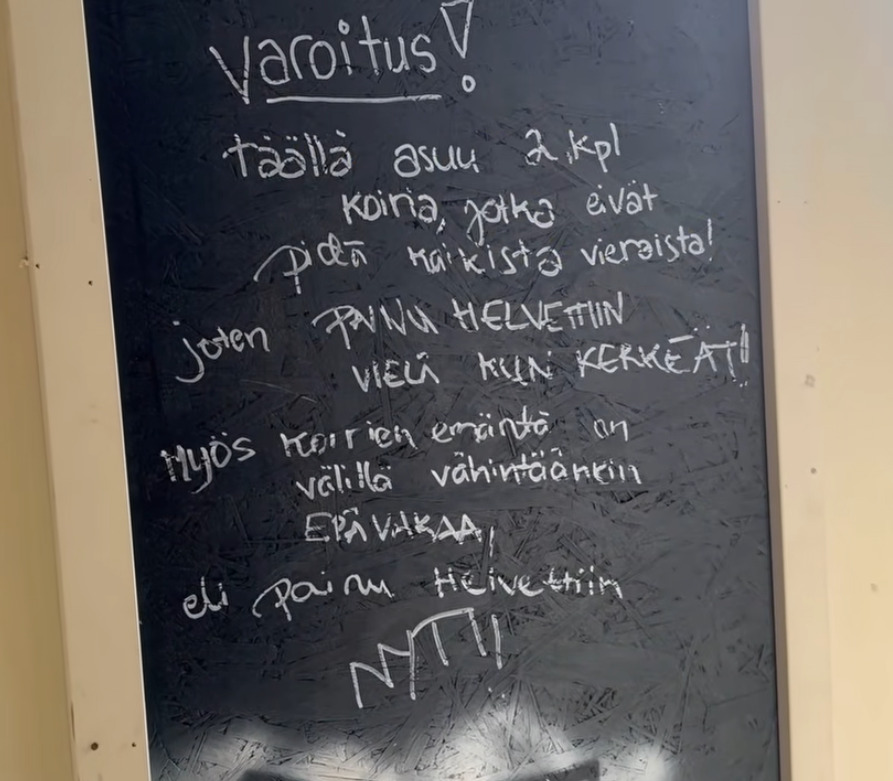 Varoitus!
täällä asuu 2 kpl
koiria, jotka eivät
pidä kaikista vieraista!
joten PAINU HELVETTIIN
VIELÄ KUN KERKEÄT!!
Myös koirien emäntä on
välillä vähintäänkin
EPÄVAKAA,
eli painu Helvettiin
NYT!!